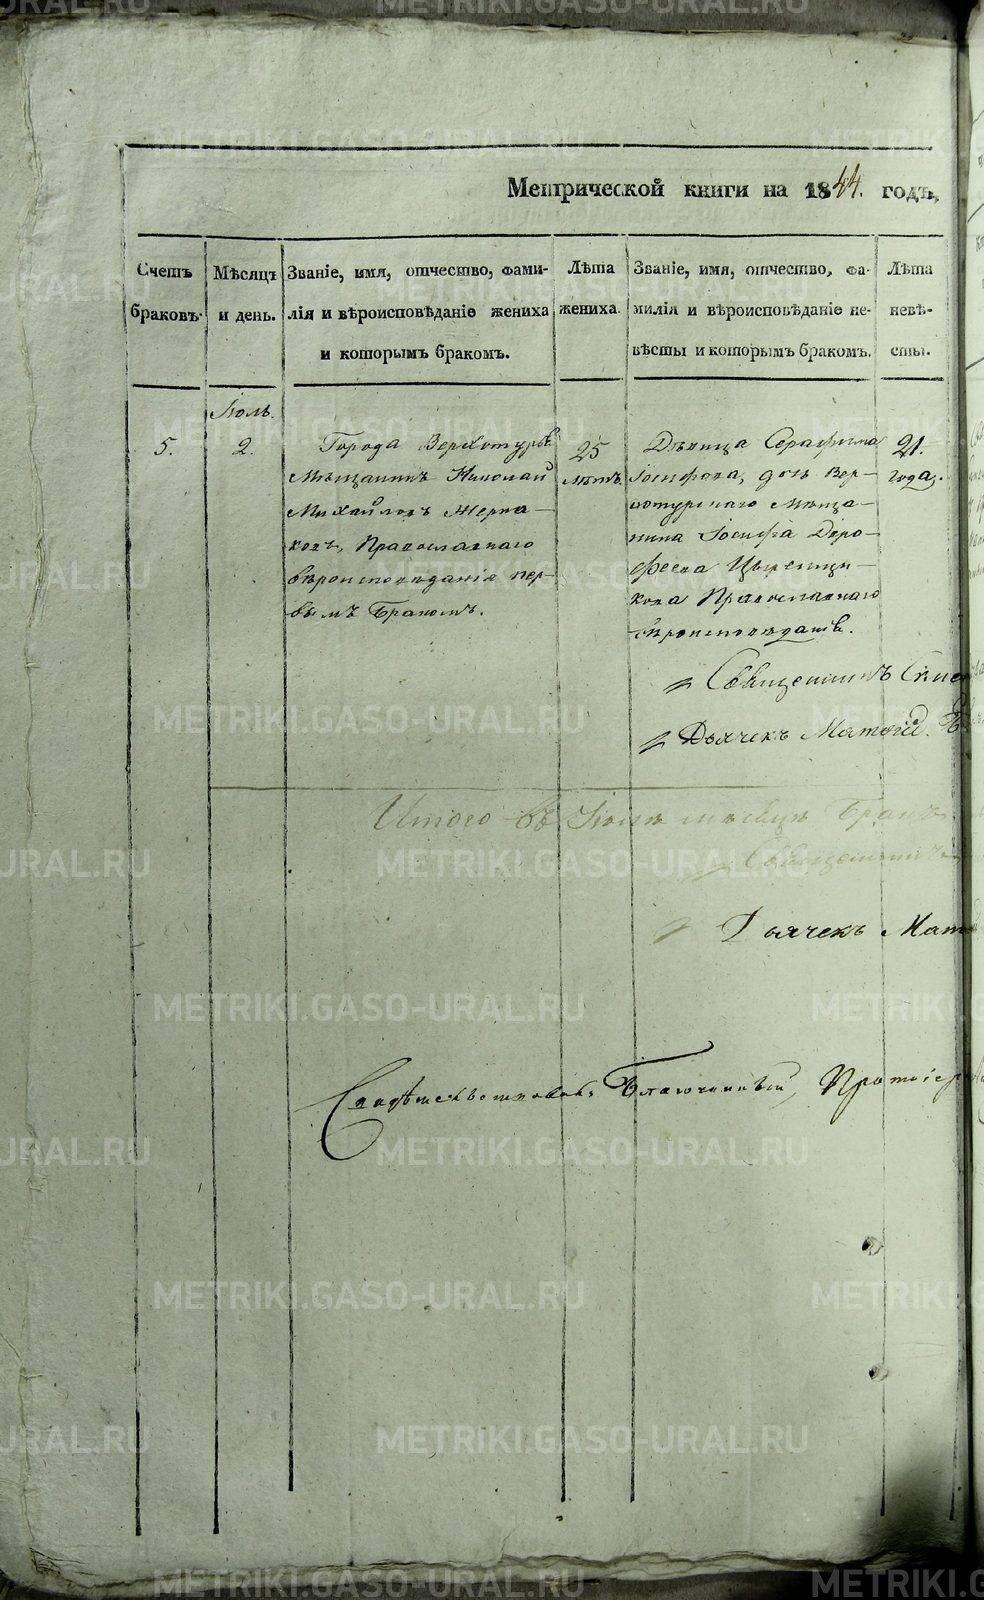 Метрической книги на 1844. годъ,
Счетъ браковъ.
Мѣсяцъ и день.
Званіе, имя, отчество, фами-
лія и вѣроисповѣданіе жениха
и которымъ бракомъ.
Лѣта жениха.
Званіе, имя, отчество, фа-
милія и вѣроисповѣданіе не-
вѣсты и которымъ бракомъ.
Лѣта невѣ-
сты.
5.
Іюль.
2.
Города Верхотурья
Мѣщанинъ Николай
Михайловъ Жерна-
ковъ, Православнаго
вѣроисповѣданія пер-
вымъ бракомъ.
25
лѣтъ.
Дѣвица Серафима
Іосифова, дочь Вер-
хотурскаго мѣща-
нина Іосифа Доро-
феева
Православнаго
вѣроисповѣданія.
21.
года.
Священникъ
Дьячекъ Матвій
Итого въ Іюлѣ мѣсяцѣ бракъ
Священникъ
Дьячекъ Мат
Свидѣтельствовалъ Благочинный, Протоіер
METRIKI.GASO-URAL.RU